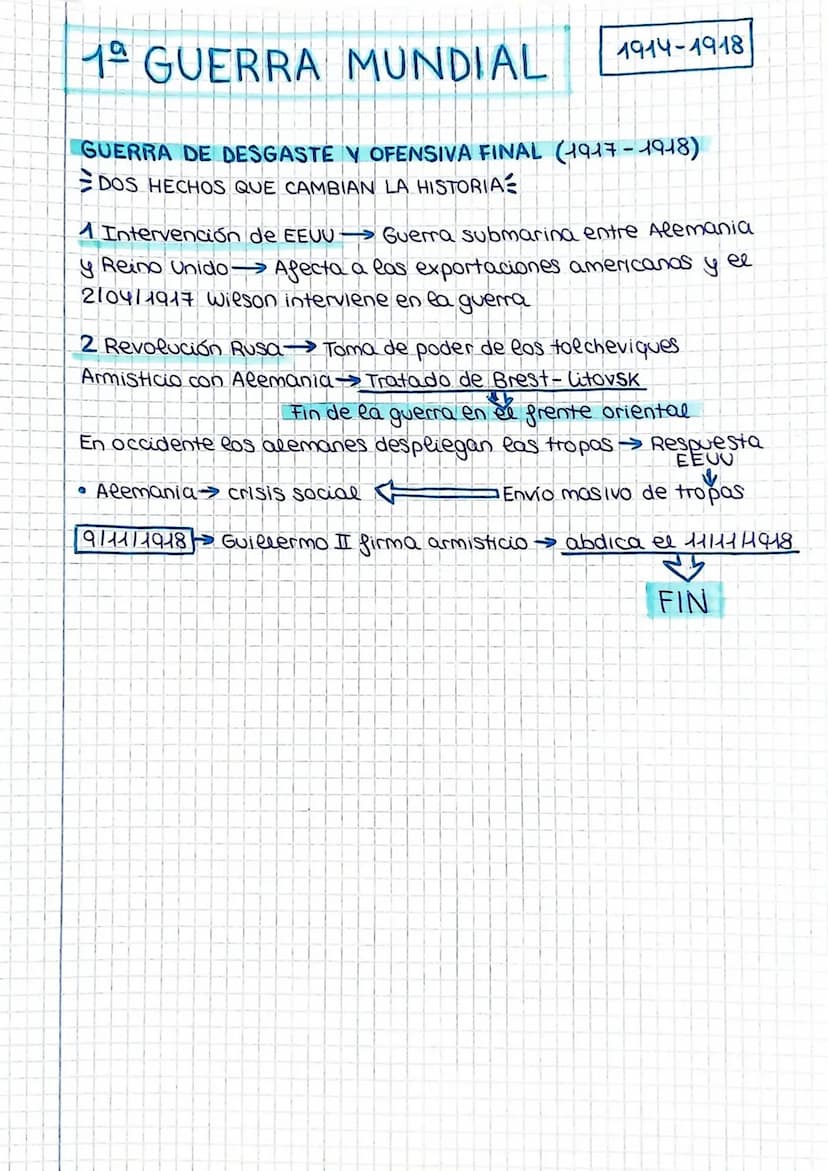 1ª GUERRA MUNDIAL
1914-1918
GUERRA DE DESGASTE Y OFENSIVA FINAL (1917-1918)
DOS HECHOS QUE CAMBIAN LA HISTORIA
1 Intervención de EEUU → Guerra submarina entre Alemania
y Reino Unido → Afecta a las exportaciones americanas y el
2/04/1917 Wilson interviene en la guerra
2 Revolución Rusa → Toma de poder de los tolcheviques
Armisticio con Alemania → Tratado de Brest-Litovsk
Fin de la guerra en el frente oriental
En occidente los alemanes despliegan las tropas → Respuesta
EEUU
• Alemania → crisis social ⇐ Envío masivo de tropas
9/11/1918 → Guillermo II firma armisticio → abdica el 11/11/1918
FIN